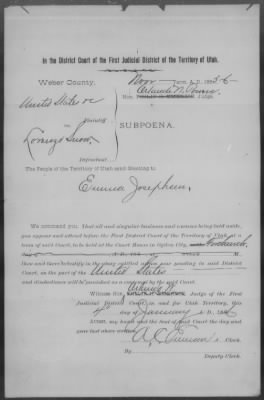 In the District Court of the First Judicial District of the Territory of Utah.
Weber County. Nov Term A. D. 1885-6
United States Hon. Orlando W. Powers Judge.
Plaintiff
vs. SUBPOENA.
Lorenzo Snow,
Defendant
The People of the Territory of Utah send Greeting to
Emma Josephson,
WE COMMAND YOU, That all and singular business and excuses being laid aside,
you appear and attend before the First District Court of the Territory of Utah at a
term of said Court, to be held at the Court House in Ogden City,
M.
then and there to testify in the above entitled action now pending in said District
Court, on the part of the United States
and disobedience will be punished as a contempt by the said Court.
WITNESS Hon. Judge of the First
Judicial District Court in and for Utah Territory, this
4th day of January A. D. 188
ATTEST, my hand and the Seal of said Court the day and
year last above written.
A. C. Emerson Clerk.
By
Deputy Clerk.